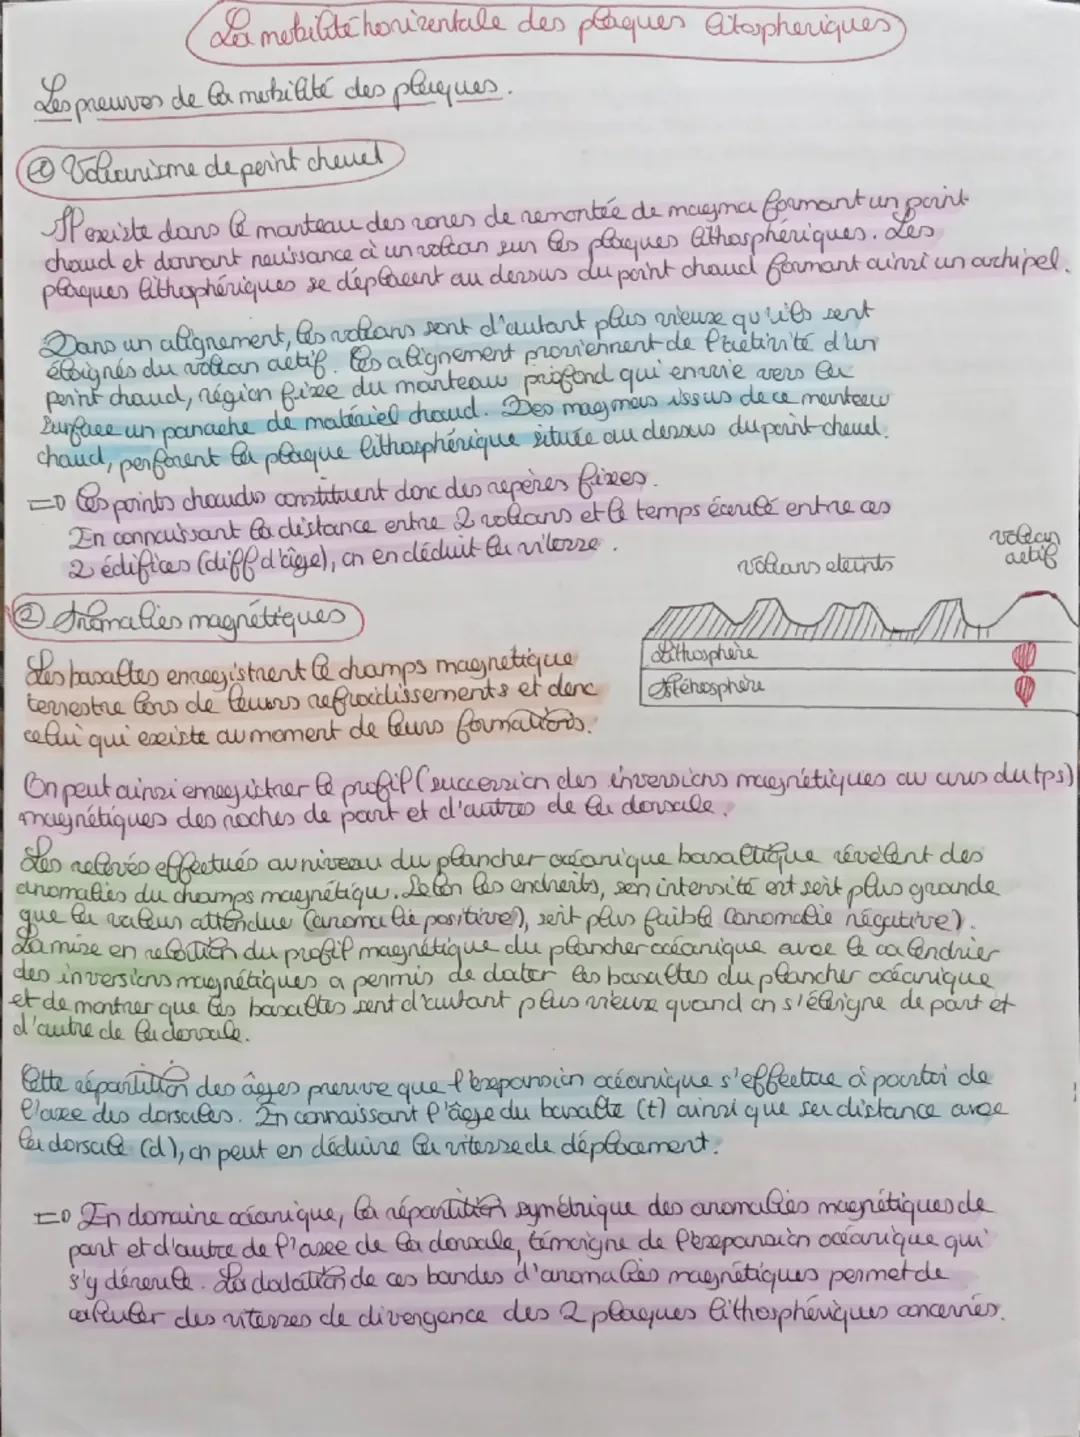 La mobilité horizentale des plaques litospheriques
Les preuves de la mobilité des plaques.
① Volcanisme de point chaud
Il existe dans le manteau des zones de remontée de magma formant un point
chaud et donnant naissance à un volcan sur les plaques lithosphériques. Les
plaques lithosphériques se déplacent au dessus du point chaud formant ainsi un archipel.
Dans un alignement, les volcans sont d'autant plus vieux qu'ils sont
éloignés du volcan actif. Ces alignement proviennent de l'activité d'un
point chaud, région fixe du manteau profond qui envoie vers la
surface un panache de matériel chaud. Des magmas issus de ce manteau
chaud, perforent la plaque lithosphérique située au dessus du point chaud.
=> Ces points chauds constituent donc des repères fixes.
En connaissant la distance entre 2 volcans et le temps écoulé entre ces
2 édifices (diff d'âge), on en déduit la vitesse.
volcans eteints
volcan
actif
Lithosphère
Asthénosphère
② Anomalies magnétiques
Les basaltes enregistrent le champs magnetique
terrestre lors de leurs refroidissements et donc
celui qui existe au moment de leurs formations.
On peut ainsi enregistrer le profil (succession des inversions magnétiques au cours du tps)
magnétiques des roches de part et d'autres de la dorsale.
Les relevés effectués au niveau du plancher océanique basaltique révèlent des
anomalies du champs magnétique. Selon les endroits, son intensité est soit plus grande
que la valeur attendue (anomalie positive), soit plus faible (anomalie négative).
La mise en relation du profil magnétique du plancher océanique avec le calendrier
des inversions magnétiques a permis de dater les basaltes du plancher océanique
et de montrer que les basaltes sont d'autant plus vieux quand on s'éloigne de part et
d'autre de la dorsale.
Cette répartition des âges prouve que l'expansion océanique s'effectue à partir de
l'axe des dorsales. En connaissant l'âge du basalte (t) ainsi que sa distance avec
la dorsale (d), on peut en déduire la vitesse de déplacement.
=> En domaine océanique, la répartition symétrique des anomalies magnétiques de
part et d'autre de l'axe de la dorsale, témoigne de l'expansion océanique qui
s'y déroule. La datation de ces bandes d'anomalies magnétiques permet de
calculer des vitesses de divergence des 2 plaques lithosphériques concernés.